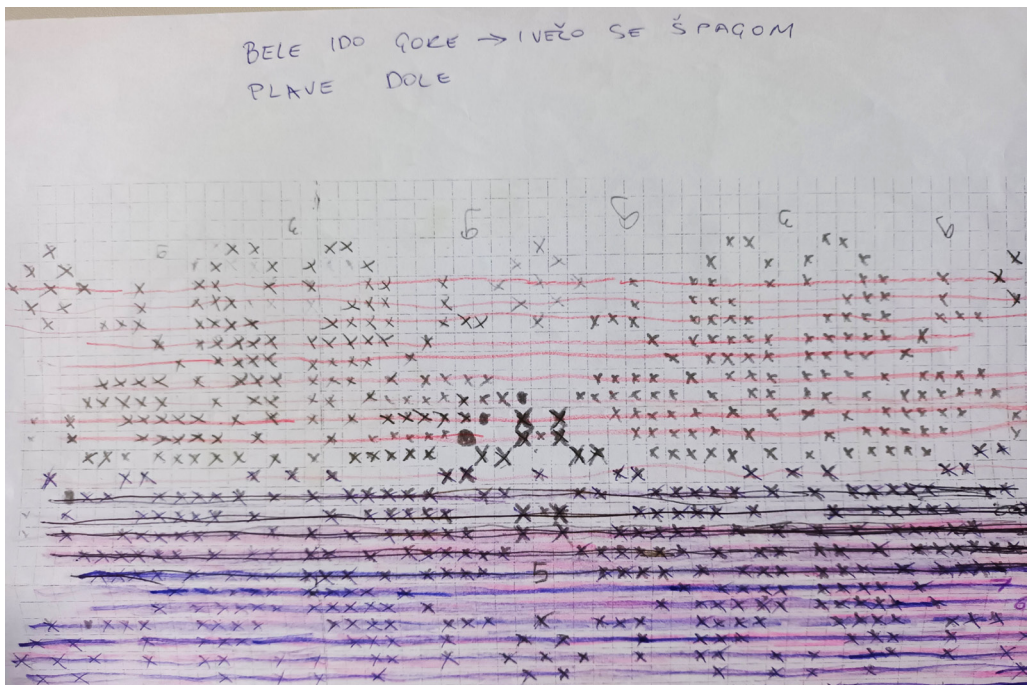 BELE IDO GORE → IVEČO SE ŠPAGOM
PLAVE DOLE
5